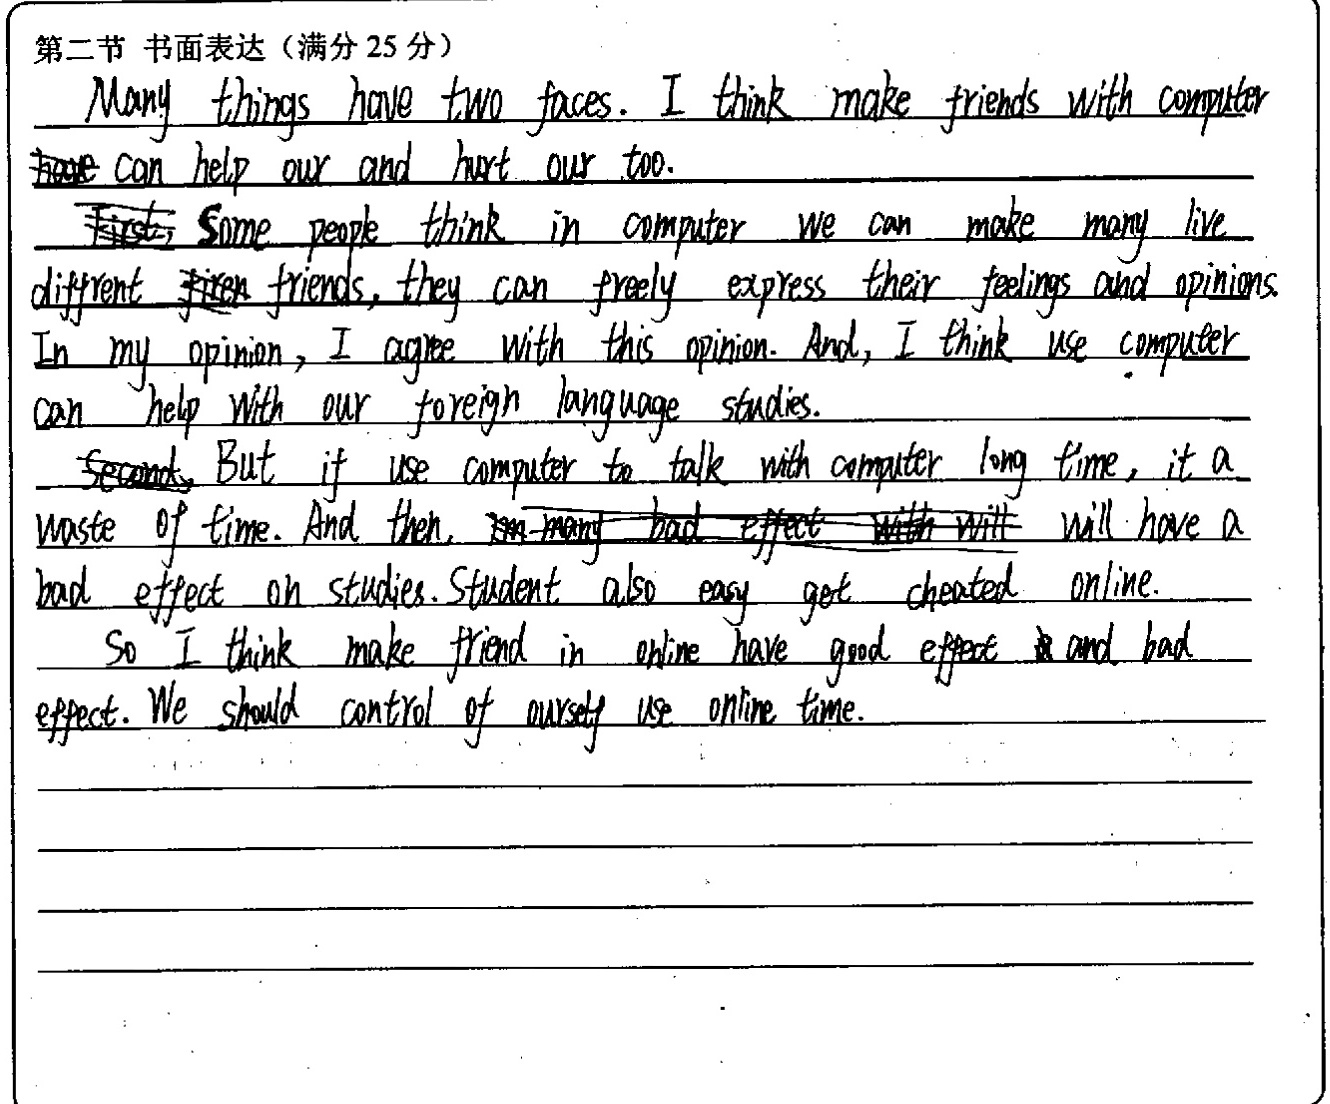 第二节 书面表达（满分 25 分）
Many things have two faces. I think make friends with computer
can help our and hurt our too.
Some people think in computer we can make many live
diffrent friends, they can freely express their feelings and opinions.
In my opinion, I agree with this opinion. And, I think use computer
can help with our foreign language studies.
But if use computer to talk with computer long time, it a
waste of time. And then, will have a
bad effect on studies. Student also easy get cheated online.
So I think make friend in online have good effect and bad
effect. We should control of ourself use online time.